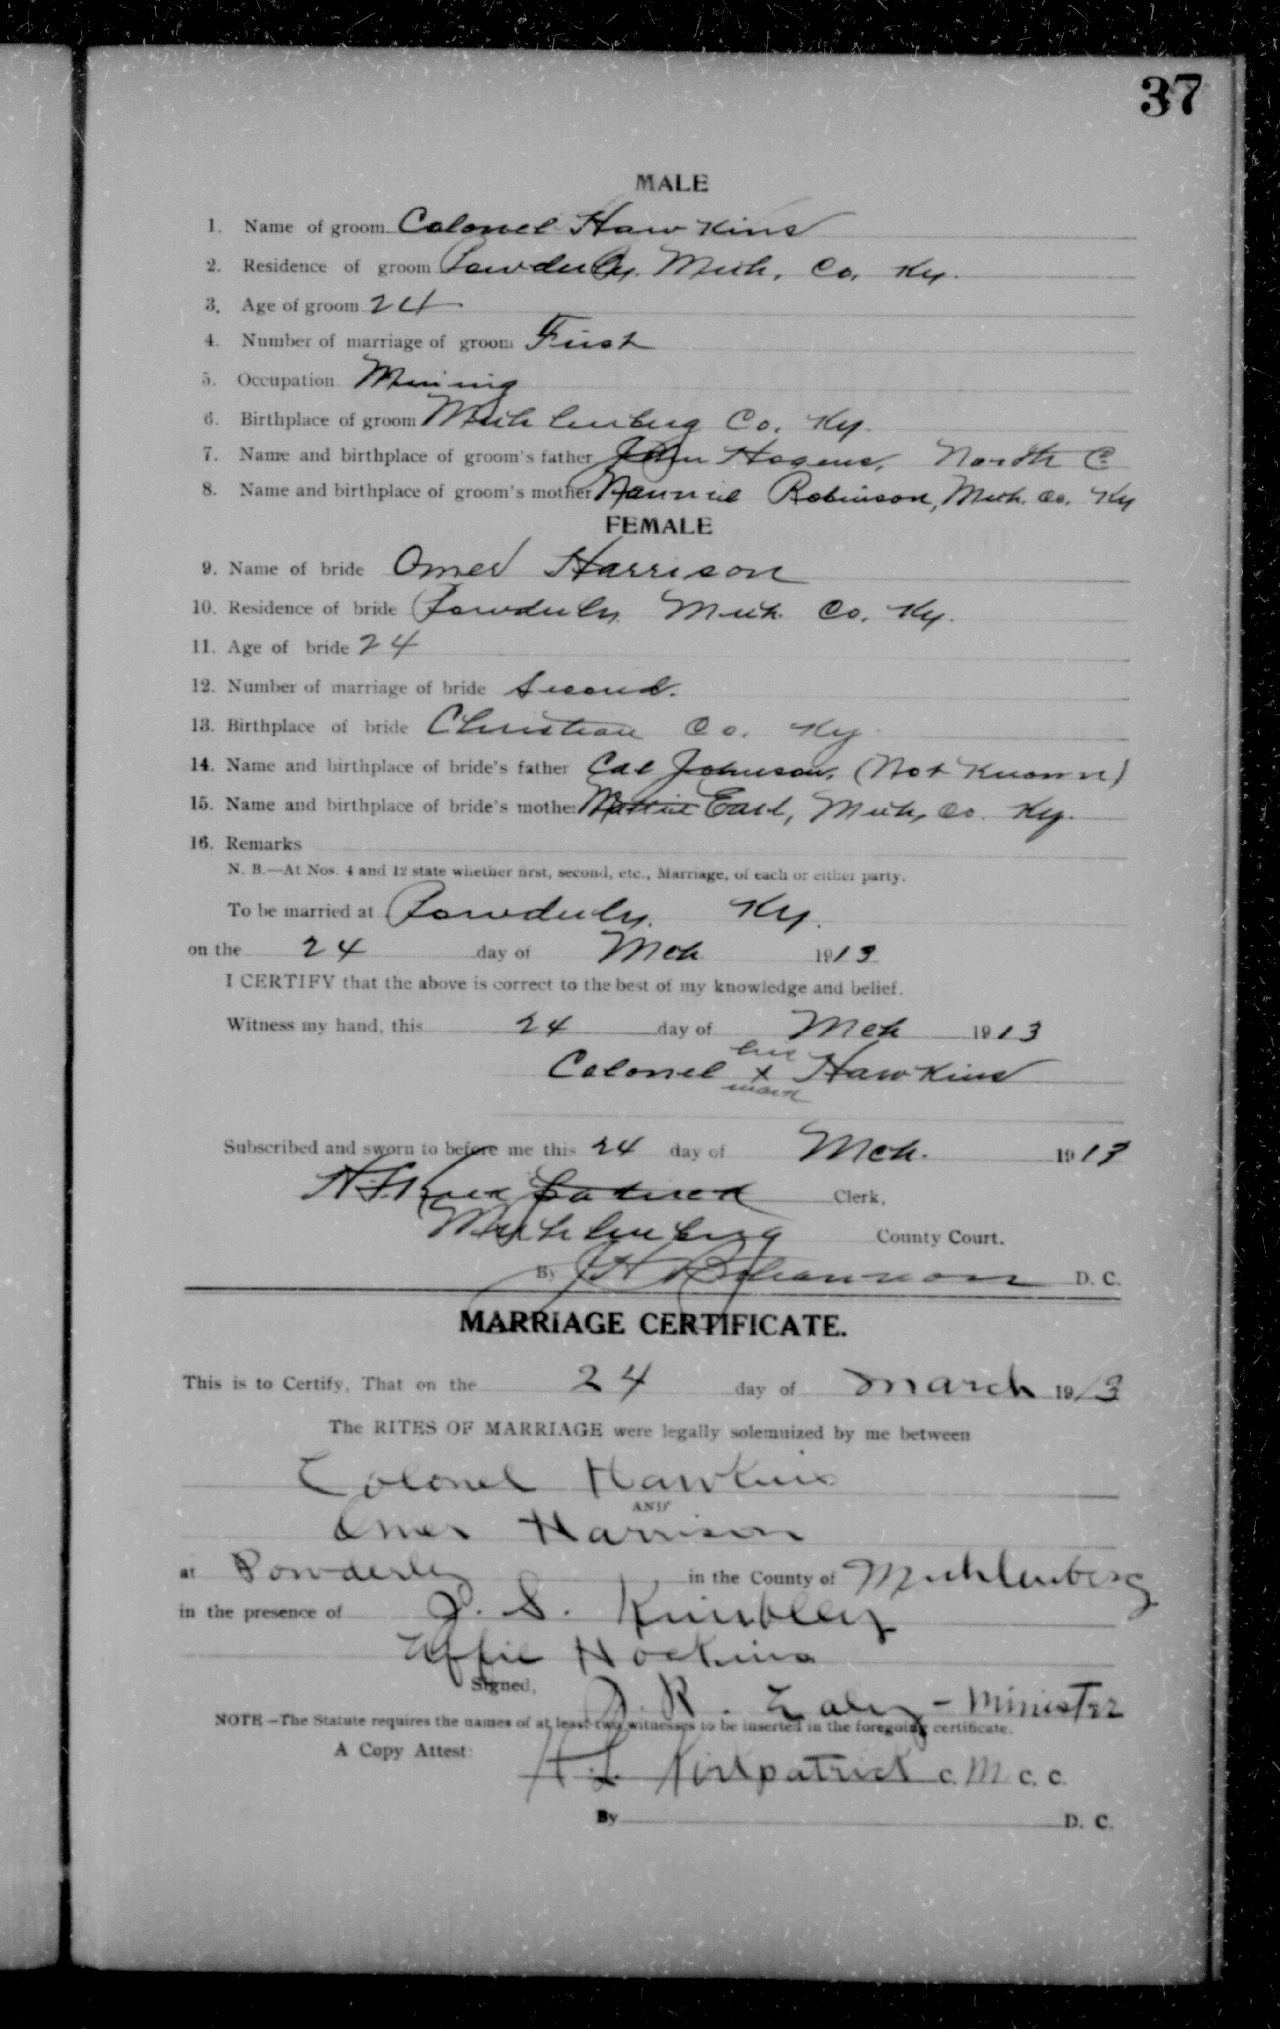 37
MALE
1. Name of groom Colonel Hawkins
2. Residence of groom Powderly Muh. Co. Ky.
3. Age of groom 24
4. Number of marriage of groom First
5. Occupation Mining
6. Birthplace of groom Muhlenberg Co. Ky.
7. Name and birthplace of groom's father John Hogens, North C
8. Name and birthplace of groom's mother Nannie Robinson, Muh. Co. Ky
FEMALE
9. Name of bride Omer Harrison
10. Residence of bride Powderly Muh. Co. Ky.
11. Age of bride 24
12. Number of marriage of bride Second.
13. Birthplace of bride Christian Co. Ky.
14. Name and birthplace of bride's father Cal Johnson, (Not Known)
15. Name and birthplace of bride's mother Mattie Earl, Muh. Co. Ky.
16. Remarks
N. B.—At Nos. 4 and 12 state whether first, second, etc., Marriage, of each or either party.
To be married at Powderly, Ky.
on the 24 day of Mch 1913
I CERTIFY that the above is correct to the best of my knowledge and belief.
Witness my hand, this 24 day of Mch 1913
his
Colonel x Hawkins
mark
Subscribed and sworn to before me this 24 day of Mch. 1913
H. L. Kirkpatrick Clerk,
Muhlenberg County Court.
By D. C.
MARRIAGE CERTIFICATE.
This is to Certify, That on the 24 day of March 1913
The RITES OF MARRIAGE were legally solemnized by me between
Colonel Hawkins
AND
Omer Harrison
at Powderly in the County of Muhlenberg
in the presence of J. S. Kimbley
Effie Hockins
Signed, J. R. - Minister
NOTE—The Statute requires the names of at least two witnesses to be inserted in the foregoing certificate.
A Copy Attest: H. L. Kirkpatrick C. M. C. C.
By D. C.